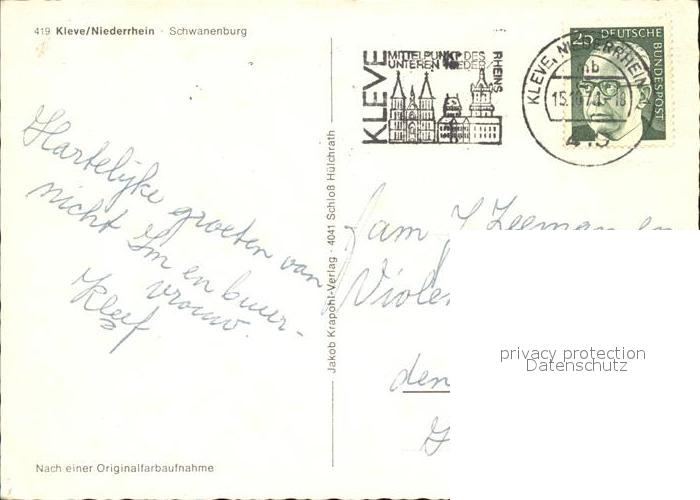 419 Kleve/Niederrhein · Schwanenburg
KLEVE
MITTELPUNKT DES
UNTEREN NIEDER
RHEINS
KLEVE, NIEDERRHEIN
mb
419
25 DEUTSCHE
BUNDESPOST
Hartelijke groeten van
nicht Im en buur-
vrouw.
Kleef
Jakob Krapohl-Verlag · 4041 Schloß Hülchrath
fam Zeeman en
den
privacy protection
Datenschutz
Nach einer Originalfarbaufnahme